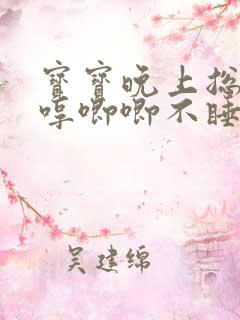 寶寶晚上總
哼唧唧不睡
吴建绵